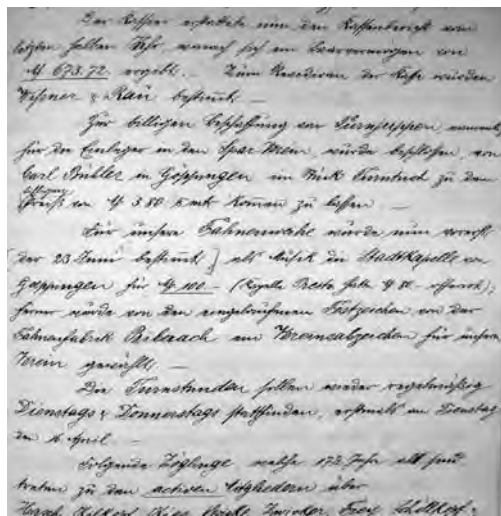 Der Kassier erstattete nun den Kassenbericht vom
letzten halben Jahr, wonach sich ein Baarvermögen von
M 673.72 ergebt. — Zum Revidiren der Kasse wurden
& Rau bestimmt. —
Zur billigen Beschaffung von Turnjuppen,
für die Einleger in den Spar-Verein, wurde beschlossen, von
Carl Bühler in Göppingen ein Stück Turntuch zu dem
Preiß von M 3.80 kommen zu lassen. —
Für unsere Fahnenweihe wurde nun vorerst
der 23 Juni bestimmt, als Musik die Stadtkapelle von
Göppingen für M 100.— (Kapelle hatte M 80.— offerirt);
ferner wurde von den eingetroffenen Festzeichen von der
Fahnenfabrik Biberach ein Vereinsabzeichen für unsern
Verein gewählt. —
Die Turnstunden sollen wieder regelmäßig
Dienstags & Donnerstags stattfinden, erstmals am Dienstag
den April. —
Folgende Zöglinge welche 17½ Jahr alt sind
traten zu den activen Mitgliedern über
Frey, Schöllkopf,